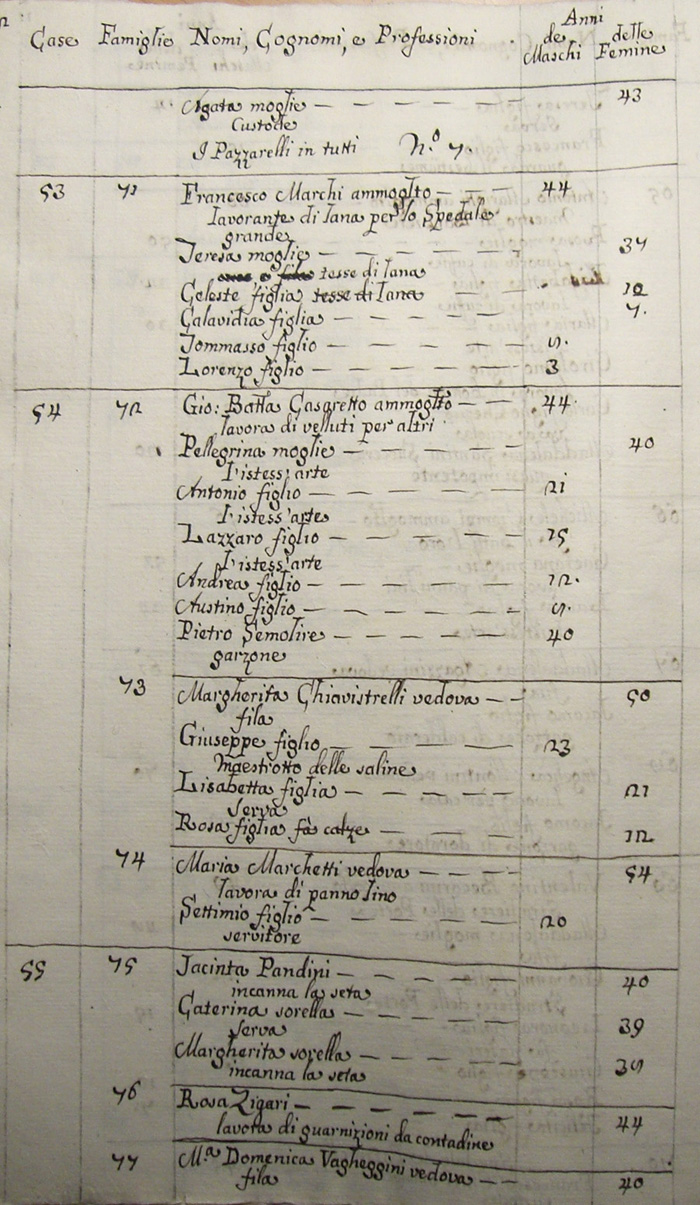 Anni
Case Famiglie Nomi, Cognomi, e Professioni de Maschi delle Femine
Agata moglie — — — — — 43
Custode
I Pazzarelli in tutti N.º 7.
53 71 Francesco Marchi ammoglto — — 44
lavorante di lana per lo Spedale
grande
Teresa moglie — — — — — 37
tesse di lana
Celeste figlia tesse di lana 12
Calavidia figlia — — — — 7.
Tommasso figlio — — — — 5.
Lorenzo figlio — — — — 3
54 72 Gio: Batta Casaretto ammoglto — — 44
lavora di velluti per altri
Pellegrina moglie — — — — 40
l'istess'arte
Antonio figlio — — — — 21
l'istess'arte
Lazzaro figlio — — — — 15
l'istess'arte
Andrea figlio — — — — 12.
Austino figlio — — — — 5.
Pietro Semolire — — — — 40
garzone
73 Margherita Chiavistrelli vedova — — 50
fila
Giuseppe figlio — — — — 23
Maestrotto delle saline
Lisabetta figlia — — — — 21
serva
Rosa figlia fà calze — — — 12
74 Maria Marchetti vedova — — — 54
lavora di panno lino
Settimio figlio — — — — 20
servitore
55 75 Jacinta Pandini — — — — 40
incanna la seta
Caterina sorella — — — — 39
serva
Margherita sorella — — — — 35
incanna la seta
76 Rosa Zigari — — — — — 44
lavora di guarnizioni da contadine
77 M.ª Domenica Vagheggini vedova — — 40
fila